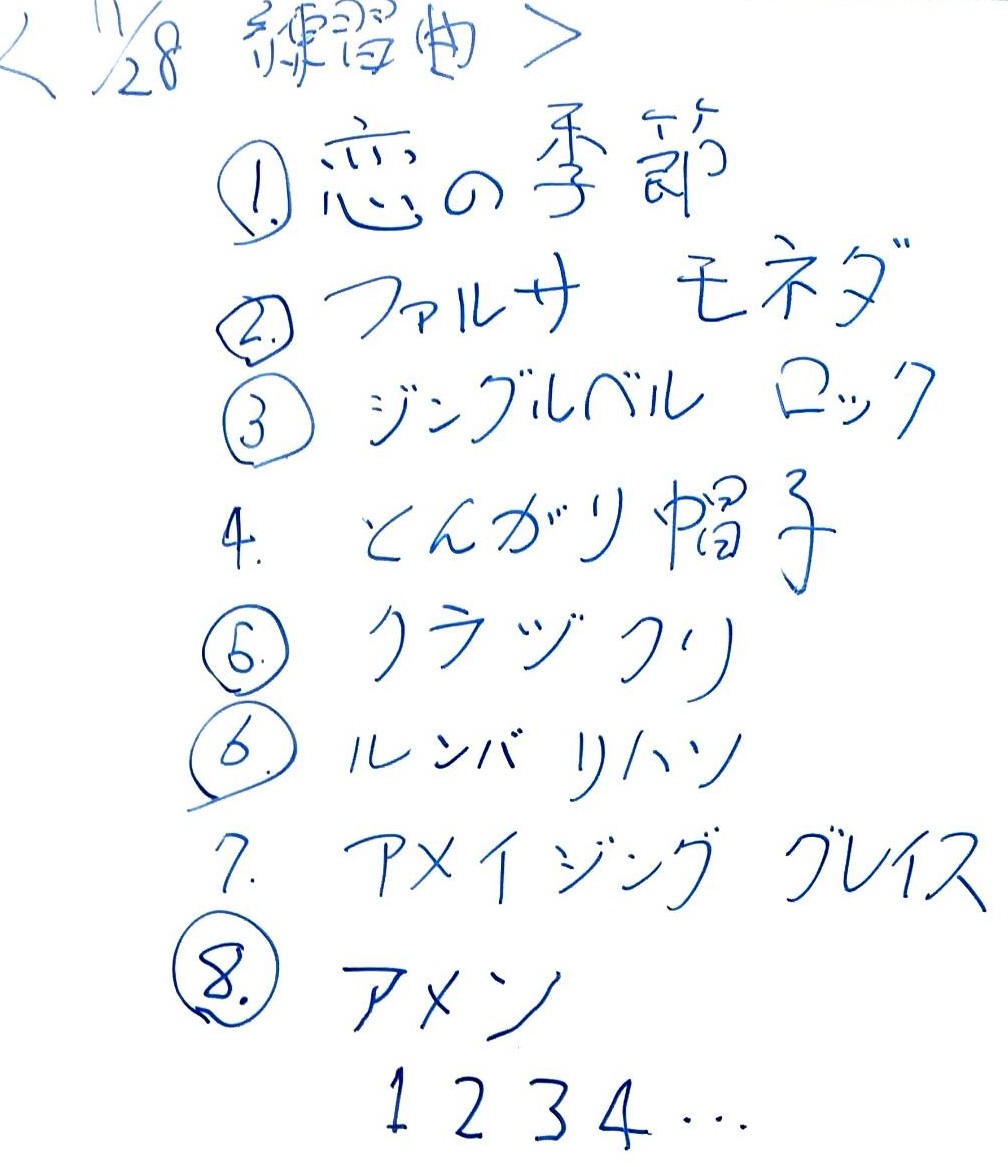 <11/28 練習曲>
①. 恋の季節
②. ファルサ モネダ
③ ジングルベル ロック
4. とんがり帽子
⑤. クラヅクリ
⑥. ルンバ リハソ
7. アメイジング グレイス
⑧. アメン
1 2 3 4 ...